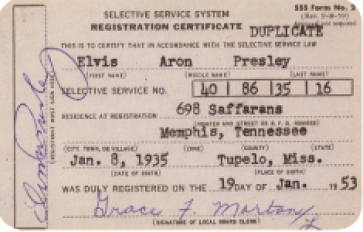 SSS Form No. 2
SELECTIVE SERVICE SYSTEM
REGISTRATION CERTIFICATE
DUPLICATE
THIS IS TO CERTIFY THAT IN ACCORDANCE WITH THE SELECTIVE SERVICE LAW
Elvis Aron Presley
(FIRST NAME) (MIDDLE NAME) (LAST NAME)
SELECTIVE SERVICE NO. 40 86 35 16
RESIDENCE AT REGISTRATION 698 Saffarans
(NUMBER AND STREET OR R. F. D. NUMBER)
Memphis, Tennessee
(CITY, TOWN, OR VILLAGE) (ZONE) (COUNTY) (STATE)
Jan. 8, 1935 Tupelo, Miss.
(DATE OF BIRTH) (PLACE OF BIRTH)
WAS DULY REGISTERED ON THE 19 DAY OF Jan. 1953
Grace F. Morton
(SIGNATURE OF LOCAL BOARD CLERK)
(REGISTRANT MUST SIGN HERE)